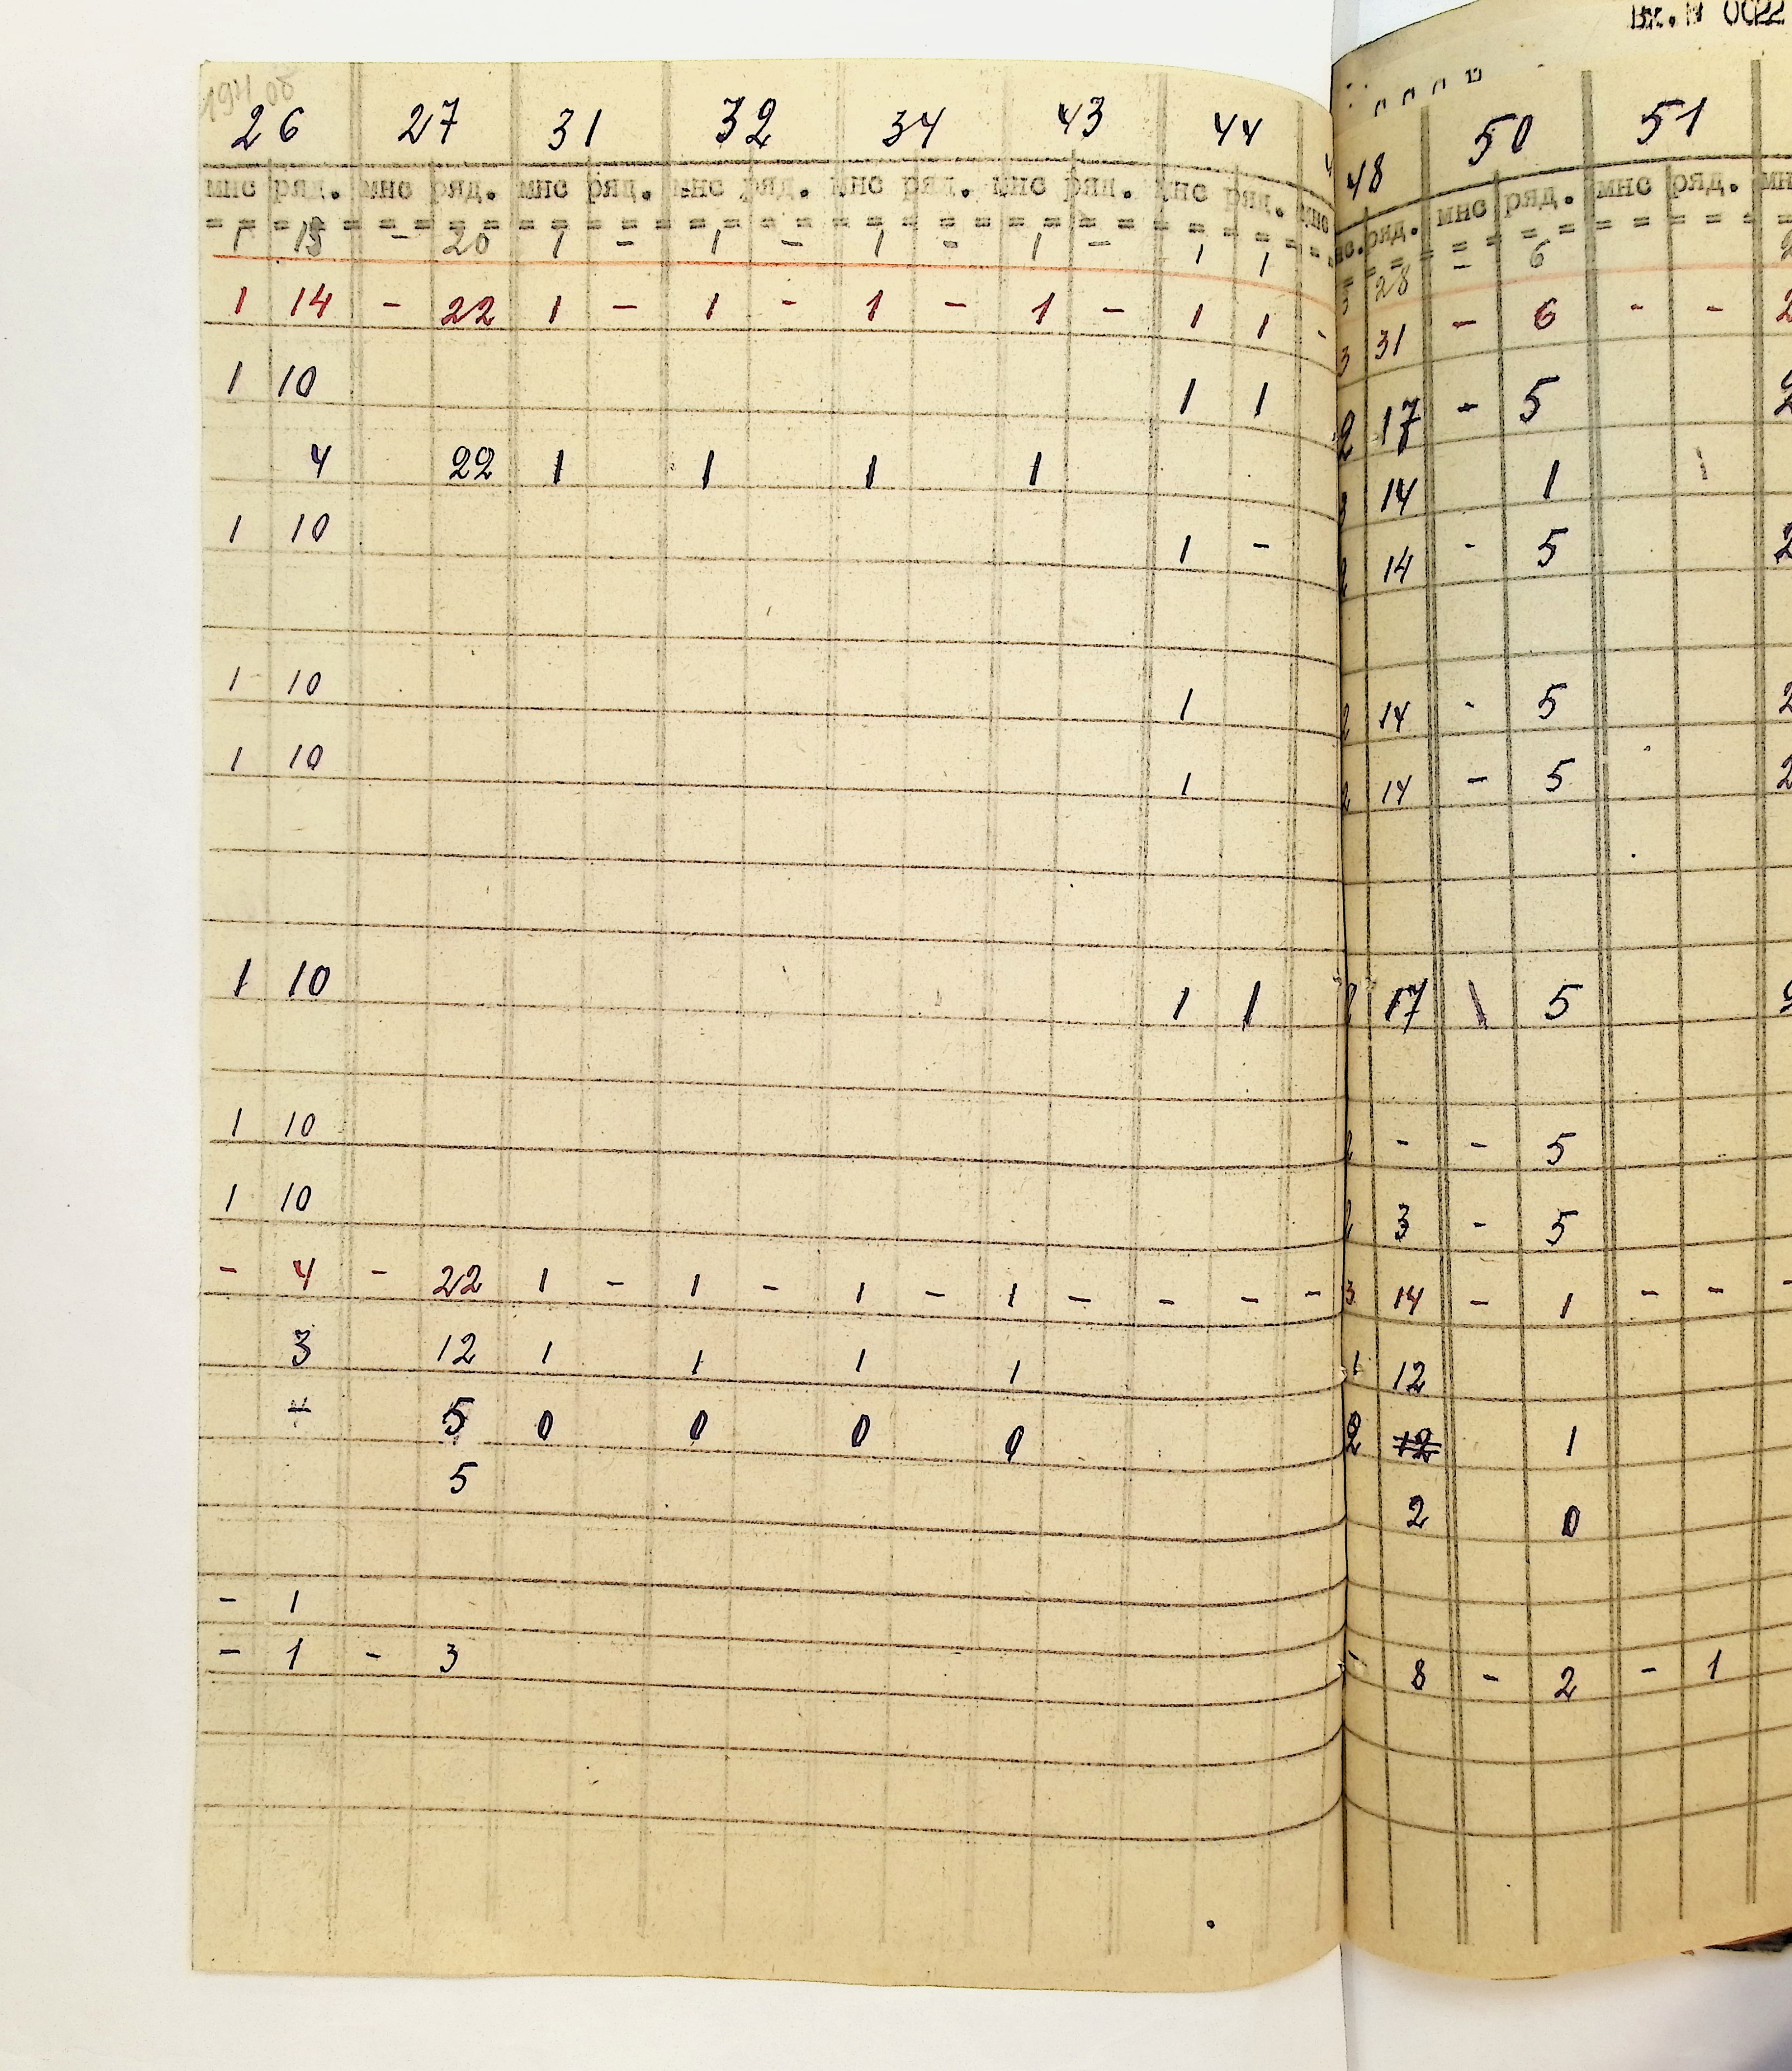 Вх.N 0022
26 27 31 32 34 43 44 48 50 51
мнс ряд. мнс ряд. мнс ряд. мнс ряд. мнс ряд. мнс ряд. мнс ряд. мнс ряд. мнс ряд. мнс ряд. мн
1 13 - 20 1 - 1 - 1 - 1 - 1 1 3 28 - 6 2
1 14 - 22 1 - 1 - 1 - 1 - 1 1 - 3 31 - 6 - - 2
1 10 1 1 2 17 - 5 2
4 22 1 1 1 1 3 14 1 1
1 10 1 - 2 14 - 5 2
1 10 1 2 14 - 5 2
1 10 1 2 14 - 5 2
1 10 1 1 2 17 \ 5 2
1 10 2 - - 5
1 10 2 3 - 5
- 4 - 22 1 - 1 - 1 - 1 - - - - 3 14 - 1 - - -
3 12 1 1 1 1 1 12
5 0 0 0 0 2 12 1
5 2 0
- 1
- 1 - 3 - 8 - 2 - 1